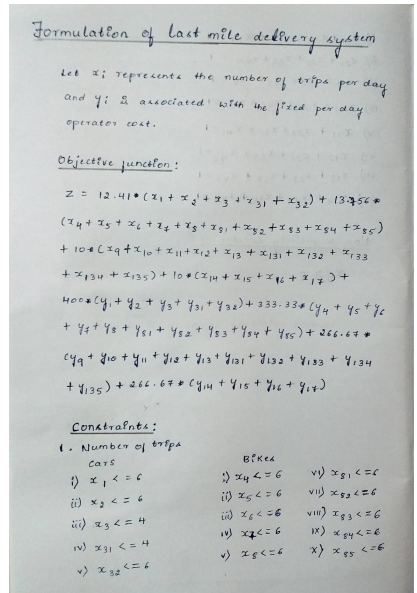 Formulation of last mile delivery system
Let xi represents the number of trips per day
and yi is associated with the fixed per day
operator cost.
Objective function:
Z = 12.41*(x1 + x2 + x3 + x31 + x32) + 13.756*
(x4 + x5 + x6 + x7 + x8 + x81 + x82 + x83 + x84 + x85)
+ 10*(x9 + x10 + x11 + x12 + x13 + x131 + x132 + x133
+ x134 + x135) + 10*(x14 + x15 + x16 + x17) +
400*(y1 + y2 + y3 + y31 + y32) + 333.33*(y4 + y5 + y6
+ y7 + y8 + y81 + y82 + y83 + y84 + y85) + 266.67*
(y9 + y10 + y11 + y12 + y13 + y131 + y132 + y133 + y134
+ y135) + 266.67*(y14 + y15 + y16 + y17)
Constraints:
1. Number of trips
Cars Bikes
i) x1 <= 6 i) x4 <= 6 vi) x81 <= 6
ii) x2 <= 6 ii) x5 <= 6 vii) x82 <= 6
iii) x3 <= 4 iii) x6 <= 6 viii) x83 <= 6
iv) x31 <= 4 iv) x7 <= 6 ix) x84 <= 6
v) x32 <= 6 v) x8 <= 6 x) x85 <= 6